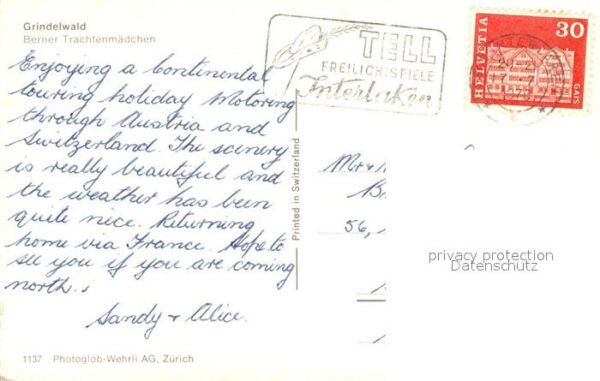 Grindelwald
Berner Trachtenmädchen
TELL
FREILICHTSPIELE
Interlaken
HELVETIA
30
GAIS
Enjoying a Continental
touring holiday Motoring
through Austria and
Switzerland. The scenery
is really beautiful and
the weather has been
quite nice. Returning
home via France. Hope to
see you if you are coming
north.
Sandy + Alice.
Printed in Switzerland
Mr +
56,
privacy protection
Datenschutz
1137 Photoglob-Wehrli AG, Zürich